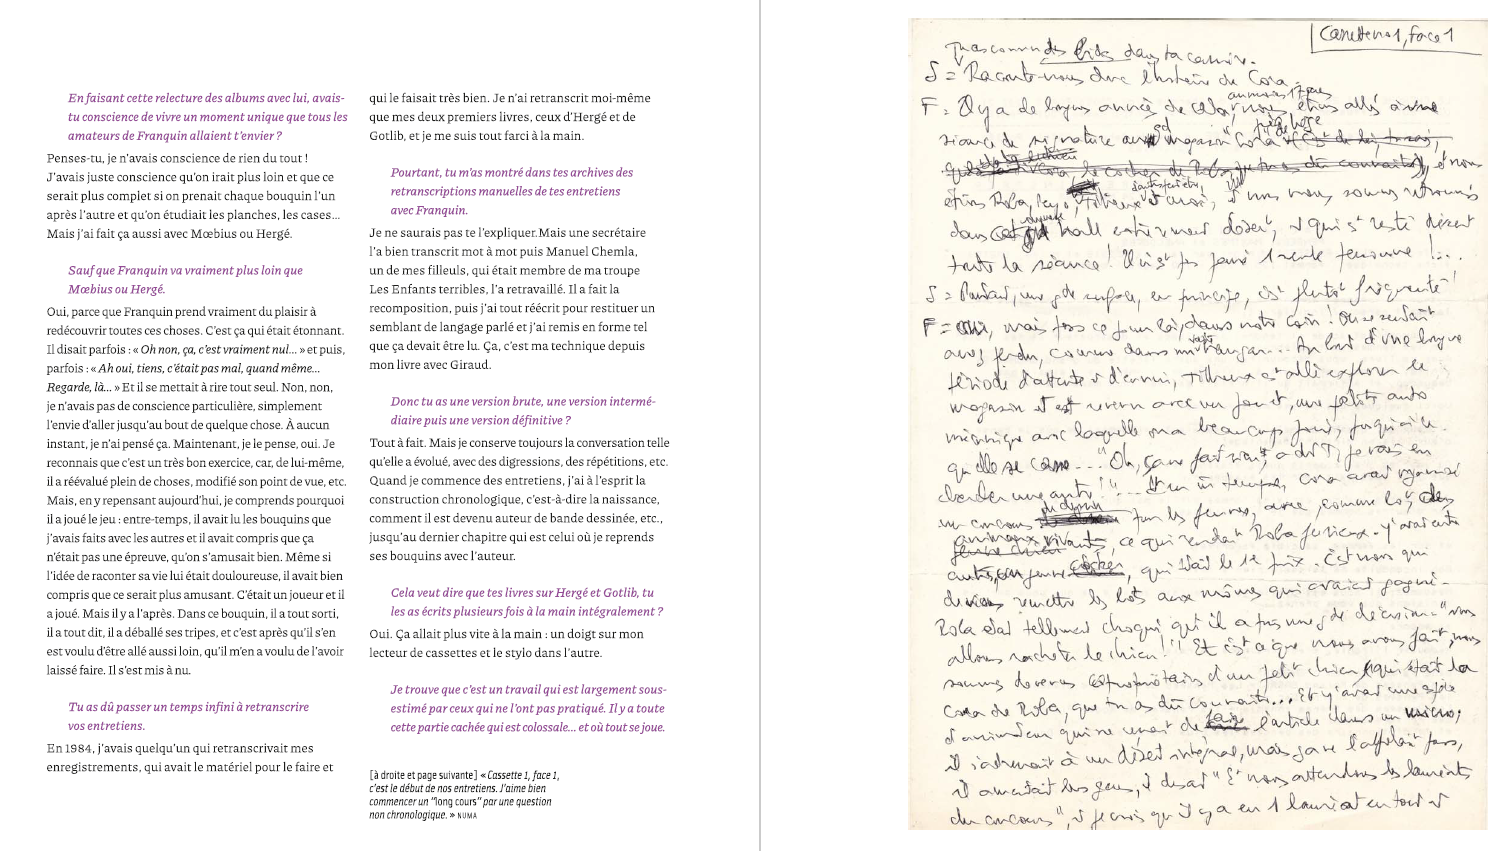 En faisant cette relecture des albums avec lui, avais-
tu conscience de vivre un moment unique que tous les
amateurs de Franquin allaient t'envier ?
Penses-tu, je n'avais conscience de rien du tout !
J'avais juste conscience qu'on irait plus loin et que ce
serait plus complet si on prenait chaque bouquin l'un
après l'autre et qu'on étudiait les planches, les cases…
Mais j'ai fait ça aussi avec Mœbius ou Hergé.
Sauf que Franquin va vraiment plus loin que
Mœbius ou Hergé.
Oui, parce que Franquin prend vraiment du plaisir à
redécouvrir toutes ces choses. C'est ça qui était étonnant.
Il disait parfois : « Oh non, ça, c'est vraiment nul… » et puis,
parfois : « Ah oui, tiens, c'était pas mal, quand même…
Regarde, là… » Et il se mettait à rire tout seul. Non, non,
je n'avais pas de conscience particulière, simplement
l'envie d'aller jusqu'au bout de quelque chose. À aucun
instant, je n'ai pensé ça. Maintenant, je le pense, oui. Je
reconnais que c'est un très bon exercice, car, de lui-même,
il a réévalué plein de choses, modifié son point de vue, etc.
Mais, en y repensant aujourd'hui, je comprends pourquoi
il a joué le jeu : entre-temps, il avait lu les bouquins que
j'avais faits avec les autres et il avait compris que ça
n'était pas une épreuve, qu'on s'amusait bien. Même si
l'idée de raconter sa vie lui était douloureuse, il avait bien
compris que ce serait plus amusant. C'était un joueur et il
a joué. Mais il y a l'après. Dans ce bouquin, il a tout sorti,
il a tout dit, il a déballé ses tripes, et c'est après qu'il s'en
est voulu d'être allé aussi loin, qu'il m'en a voulu de l'avoir
laissé faire. Il s'est mis à nu.
Tu as dû passer un temps infini à retranscrire
vos entretiens.
En 1984, j'avais quelqu'un qui retranscrivait mes
enregistrements, qui avait le matériel pour le faire et
qui le faisait très bien. Je n'ai retranscrit moi-même
que mes deux premiers livres, ceux d'Hergé et de
Gotlib, et je me suis tout farci à la main.
Pourtant, tu m'as montré dans tes archives des
retranscriptions manuelles de tes entretiens
avec Franquin.
Je ne saurais pas te l'expliquer. Mais une secrétaire
l'a bien transcrit mot à mot puis Manuel Chemla,
un de mes filleuls, qui était membre de ma troupe
Les Enfants terribles, l'a retravaillé. Il a fait la
recomposition, puis j'ai tout réécrit pour restituer un
semblant de langage parlé et j'ai remis en forme tel
que ça devait être lu. Ça, c'est ma technique depuis
mon livre avec Giraud.
Donc tu as une version brute, une version intermé-
diaire puis une version définitive ?
Tout à fait. Mais je conserve toujours la conversation telle
qu'elle a évolué, avec des digressions, des répétitions, etc.
Quand je commence des entretiens, j'ai à l'esprit la
construction chronologique, c'est-à-dire la naissance,
comment il est devenu auteur de bande dessinée, etc.,
jusqu'au dernier chapitre qui est celui où je reprends
ses bouquins avec l'auteur.
Cela veut dire que tes livres sur Hergé et Gotlib, tu
les as écrits plusieurs fois à la main intégralement ?
Oui. Ça allait plus vite à la main : un doigt sur mon
lecteur de cassettes et le stylo dans l'autre.
Je trouve que c'est un travail qui est largement sous-
estimé par ceux qui ne l'ont pas pratiqué. Il y a toute
cette partie cachée qui est colossale… et où tout se joue.
[à droite et page suivante] « Cassette 1, face 1,
c'est le début de nos entretiens. J'aime bien
commencer un "long cours" par une question
non chronologique. » NUMA
Cassette 1, face 1
S = Raconte-nous donc l'histoire de Cora.
F = Il y a de longues années de cela, nous étions allés à une
séance de signature au magasin Cora
étions Roba, Peyo, Tillieux et aussi, et nous nous sommes retrouvés
dans hall entièrement désert, et qui est resté désert
toute la séance !
S = Pourtant, une gde surface, en principe, c'est plutôt fréquenté !
F = Oui, mais pas ce jour là, dans notre coin ! On se sentait
assez perdus, comme dans un hangar... Au bout d'une longue
période d'attente et d'ennui, Tillieux est allé explorer le
magasin et est revenu avec un jouet, une petite auto
mécanique avec laquelle on a beaucoup joué, jusqu'à ce
qu'elle se casse... "Oh, ça ne fait rien, a dit T, je vais en
chercher une autre !"... En un temps, Cora avait organisé
un concours pour les jeunes, avec, comme lots, des
animaux vivants, ce qui rendait Roba furieux. Y avait entre
autres, un jeune cocker, qui était le 1er prix. C'est nous qui
devions remettre les lots aux mômes qui avaient gagné.
Roba était tellement choqué qu'il a pris une gde décision. "Nous
allons racheter le chien !" Et c'est ce que nous avons fait, nous
sommes devenus copropriétaires d'un petit chien qui était la
Cora de Roba, que tu as dû connaître... Et y avait une espèce
d'animateur qui ne cessait de faire l'article dans un micro;
il s'adressait à un désert intégral, mais ça ne l'affolait pas,
il ameutait les gens, il disait "Et nous attendons les lauréats
du concours", et je crois qu'il y a eu 1 lauréat en tout et